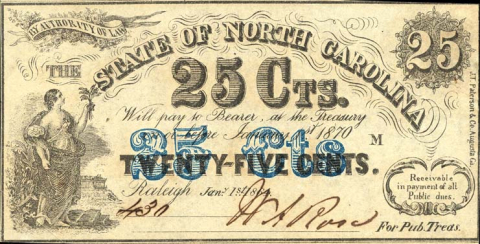 BY AUTHORITY OF LAW
THE
STATE OF NORTH CAROLINA
25
25 CTS.
Will pay to Bearer, at the Treasury
on or before January 1st 1870
M
25 Cts
TWENTY-FIVE CENTS.
Raleigh Jany 1st
430
For Pub. Treas.
Receivable
in payment of all
Public dues.
J.T. Paterson & Co. Augusta Ga.